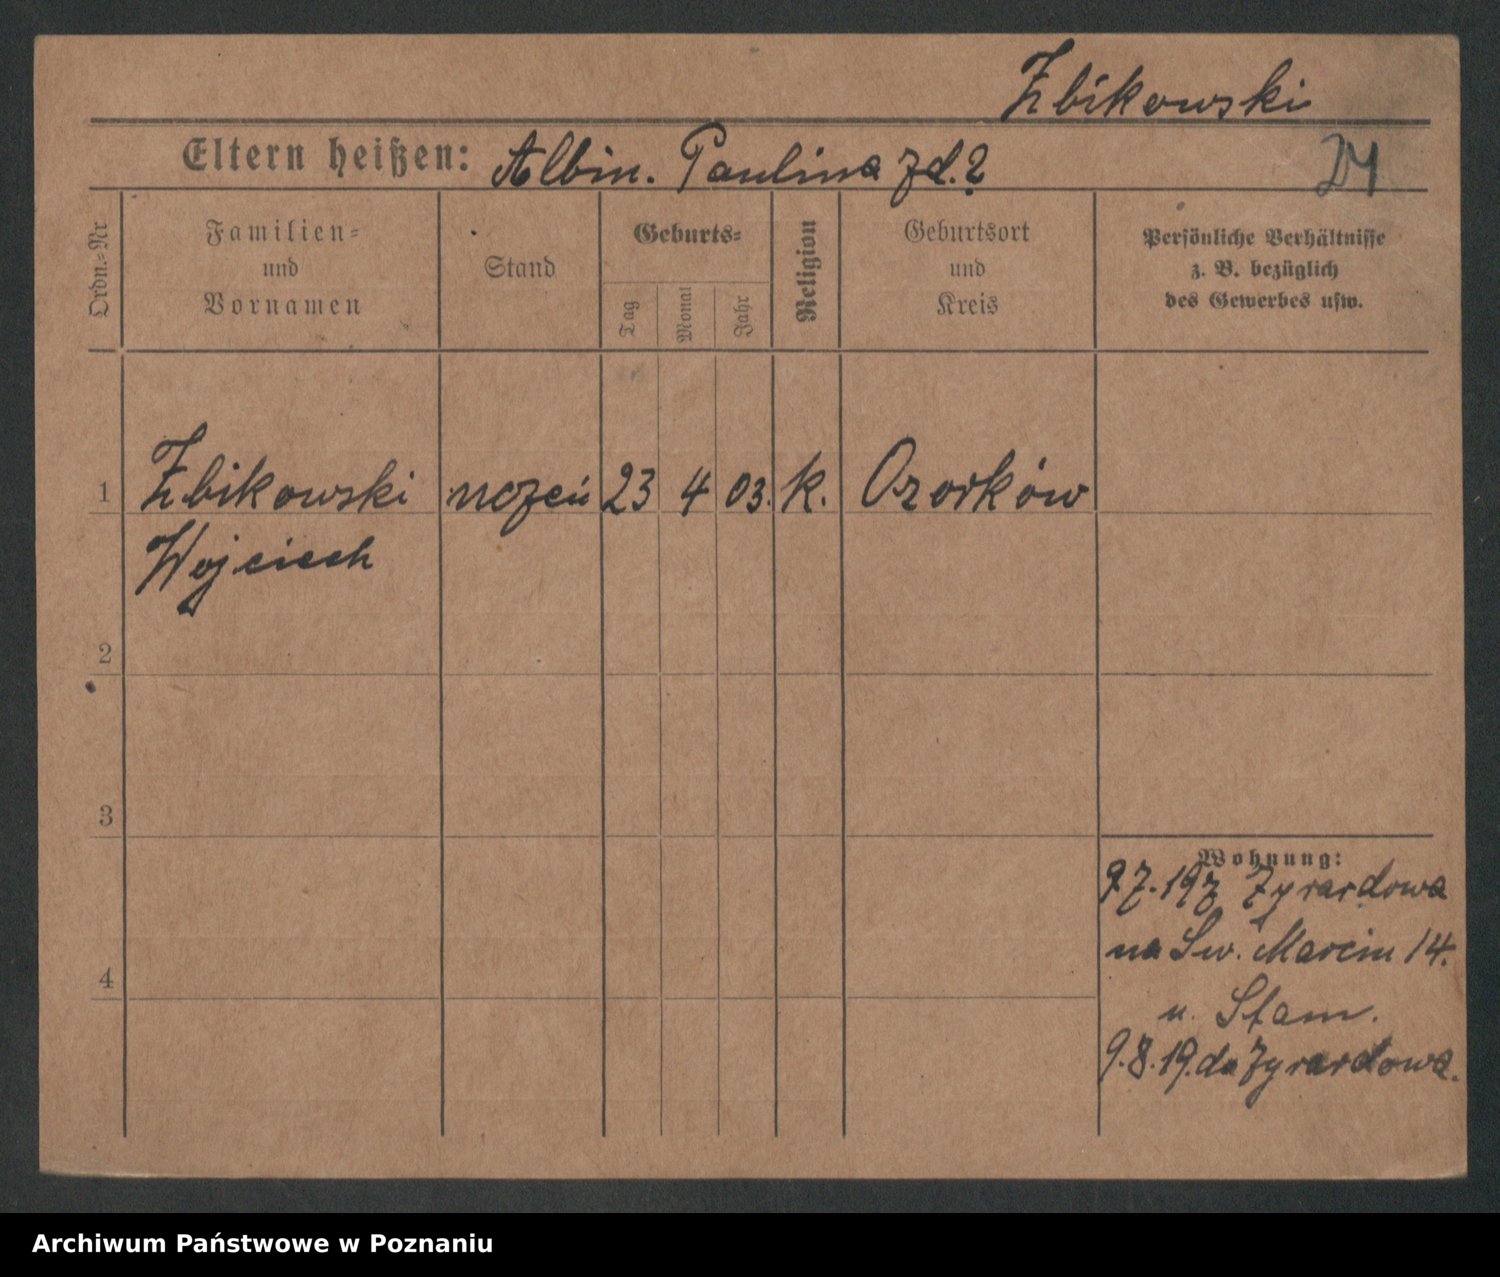 Zbikowski
Eltern heißen: Albin. Paulina zd.?
Ordn.=Nr
Familien=
und
Vornamen
Stand
Geburts=
Tag
Monat
Jahr
Religion
Geburtsort
und
Kreis
Persönliche Verhältnisse
z. B. bezüglich
des Gewerbes usw.
1 Zbikowski uczeń 23 4 03. k. Ozorków
Wojciech
2
3
4
Wohnung:
9.7.19 z Zyrardowa
na Św. Marcin 14.
u. Stam.
9.8.19. do Zyrardowa.
Archiwum Państwowe w Poznaniu